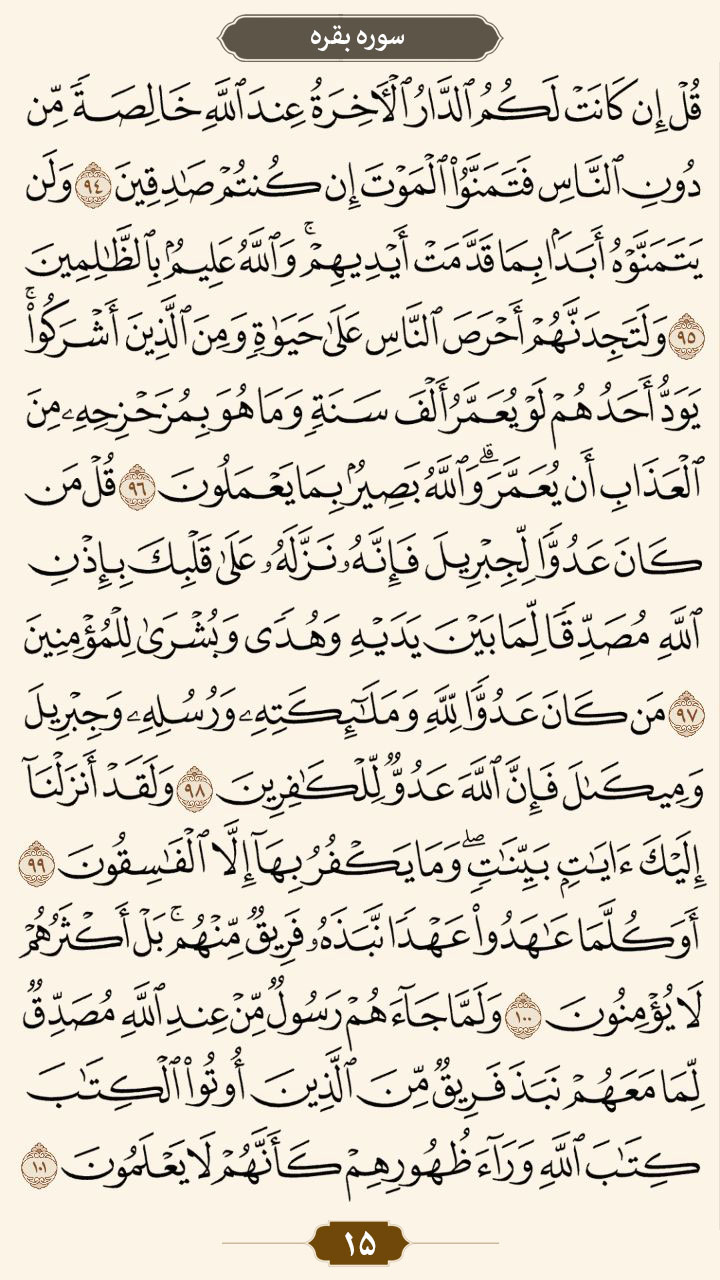 سوره بقره
قُلْ إِن كَانَتْ لَكُمُ ٱلدَّارُ ٱلْـَٔاخِرَةُ عِندَ ٱللَّهِ خَالِصَةً مِّن
دُونِ ٱلنَّاسِ فَتَمَنَّوُا۟ ٱلْمَوْتَ إِن كُنتُمْ صَـٰدِقِينَ ٩٤ وَلَن
يَتَمَنَّوْهُ أَبَدَۢا بِمَا قَدَّمَتْ أَيْدِيهِمْ ۚ وَٱللَّهُ عَلِيمُۢ بِٱلظَّـٰلِمِينَ
٩٥ وَلَتَجِدَنَّهُمْ أَحْرَصَ ٱلنَّاسِ عَلَىٰ حَيَوٰةٍ وَمِنَ ٱلَّذِينَ أَشْرَكُوا۟ ۚ
يَوَدُّ أَحَدُهُمْ لَوْ يُعَمَّرُ أَلْفَ سَنَةٍ وَمَا هُوَ بِمُزَحْزِحِهِۦ مِنَ
ٱلْعَذَابِ أَن يُعَمَّرَ ۗ وَٱللَّهُ بَصِيرُۢ بِمَا يَعْمَلُونَ ٩٦ قُلْ مَن
كَانَ عَدُوًّا لِّجِبْرِيلَ فَإِنَّهُۥ نَزَّلَهُۥ عَلَىٰ قَلْبِكَ بِإِذْنِ
ٱللَّهِ مُصَدِّقًا لِّمَا بَيْنَ يَدَيْهِ وَهُدًى وَبُشْرَىٰ لِلْمُؤْمِنِينَ
٩٧ مَن كَانَ عَدُوًّا لِّلَّهِ وَمَلَـٰٓئِكَتِهِۦ وَرُسُلِهِۦ وَجِبْرِيلَ
وَمِيكَىٰلَ فَإِنَّ ٱللَّهَ عَدُوٌّ لِّلْكَـٰفِرِينَ ٩٨ وَلَقَدْ أَنزَلْنَآ
إِلَيْكَ ءَايَـٰتِۭ بَيِّنَـٰتٍ ۖ وَمَا يَكْفُرُ بِهَآ إِلَّا ٱلْفَـٰسِقُونَ ٩٩
أَوَكُلَّمَا عَـٰهَدُوا۟ عَهْدًا نَّبَذَهُۥ فَرِيقٌ مِّنْهُم ۚ بَلْ أَكْثَرُهُمْ
لَا يُؤْمِنُونَ ١٠٠ وَلَمَّا جَآءَهُمْ رَسُولٌ مِّنْ عِندِ ٱللَّهِ مُصَدِّقٌ
لِّمَا مَعَهُمْ نَبَذَ فَرِيقٌ مِّنَ ٱلَّذِينَ أُوتُوا۟ ٱلْكِتَـٰبَ
كِتَـٰبَ ٱللَّهِ وَرَآءَ ظُهُورِهِمْ كَأَنَّهُمْ لَا يَعْلَمُونَ ١٠١
۱۵